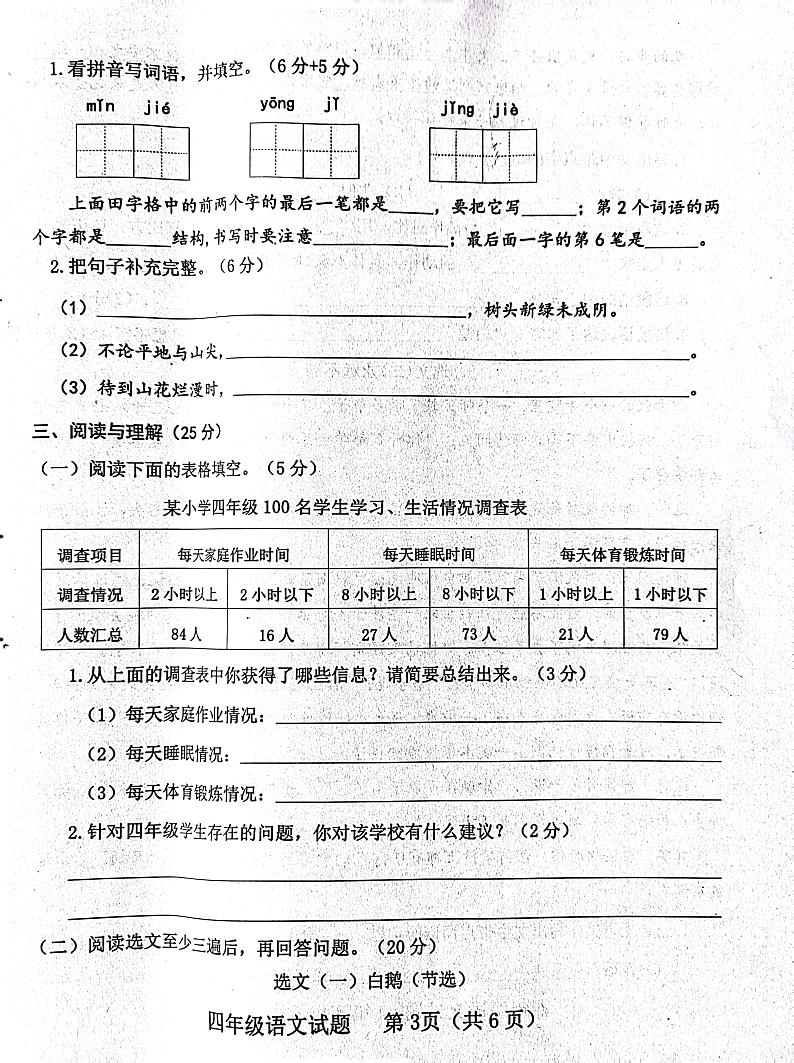 1.看拼音写词语，并填空。（6分+5分）
mǐn jié yōng jǐ jǐng jiè
上面田字格中的前两个字的最后一笔都是_____，要把它写______；第2个词语的两
个字都是_______结构,书写时要注意______________；最后面一字的第6笔是______。
2.把句子补充完整。（6分）
（1）________________________________________，树头新绿未成阴。
（2）不论平地与山尖,__________________________________________________。
（3）待到山花烂漫时，__________________________________________________。
三、阅读与理解（25分）
（一）阅读下面的表格填空。（5分）
某小学四年级100名学生学习、生活情况调查表
调查项目 每天家庭作业时间 每天睡眠时间 每天体育锻炼时间
调查情况 2小时以上 2小时以下 8小时以上 8小时以下 1小时以上 1小时以下
人数汇总 84人 16人 27人 73人 21人 79人
1.从上面的调查表中你获得了哪些信息？请简要总结出来。（3分）
（1）每天家庭作业情况：________________________________________________
（2）每天睡眠情况：____________________________________________________
（3）每天体育锻炼情况：________________________________________________
2.针对四年级学生存在的问题，你对该学校有什么建议？（2分）
（二）阅读选文至少三遍后，再回答问题。（20分）
选文（一）白鹅（节选）
四年级语文试题 第3页（共6页）